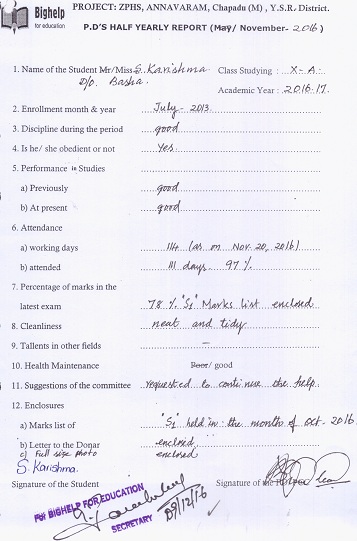 Bighelp
for education
PROJECT: ZPHS, ANNAVARAM, Chapadu (M), Y.S.R. District.
P.D'S HALF YEARLY REPORT (May/ November- 2016)
1. Name of the Student Mr/Miss S. Karishma Class Studying : X - A
D/o. Basha. Academic Year : 2016-17.
2. Enrollment month & year July - 2013.
3. Discipline during the period good
4. Is he/ she obedient or not Yes.
5. Performance in Studies
a) Previously good
b) At present good
6. Attendance
a) working days 114 (as on Nov. 20, 2016)
b) attended 111 days. 97%
7. Percentage of marks in the
latest exam 78 %. "S1" Marks list enclosed
8. Cleanliness neat and tidy
9. Tallents in other fields —
10. Health Maintenance Poor/ good
11. Suggestions of the committee requested to continue the help.
12. Enclosures
a) Marks list of "S1" held in : the month of Oct. 2016
b) Letter to the Donar enclosed
c) Full size photo enclosed
S. Karishma.
Signature of the Student Signature of the
For BIGHELP FOR EDUCATION
SECRETARY